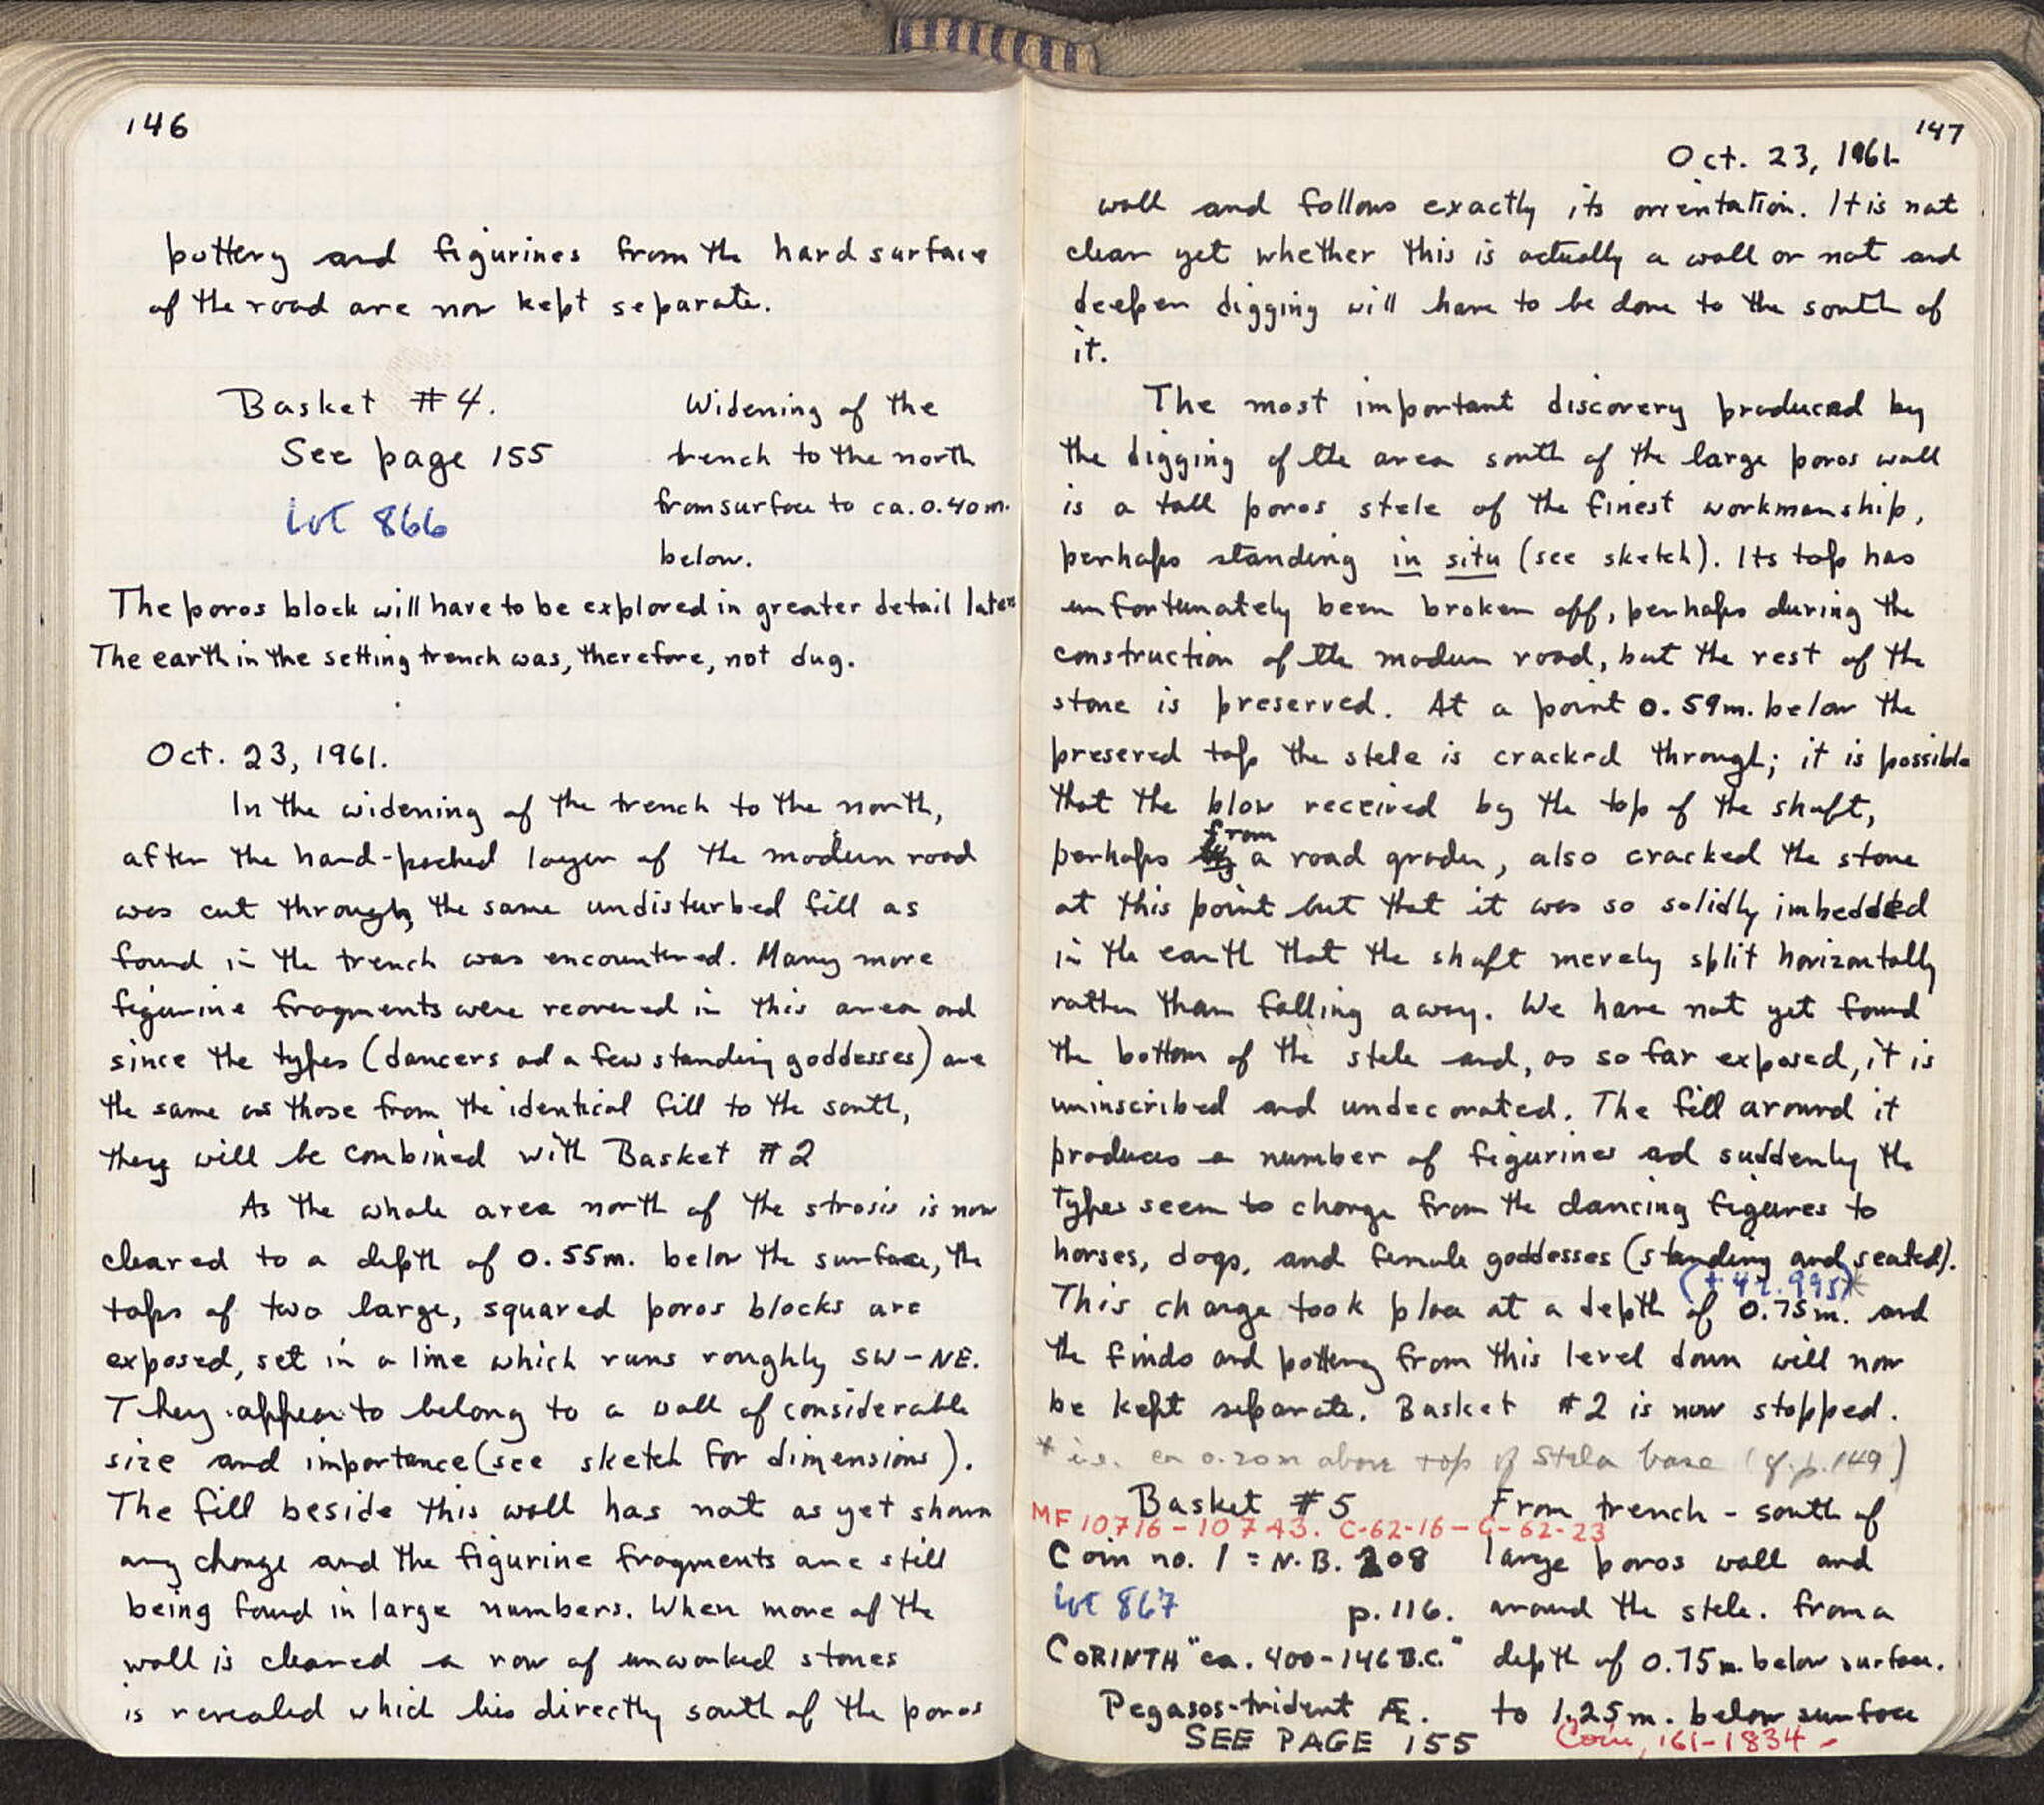 146
pottery and figurines from the hard surface
of the road are now kept separate.
Basket #4.
See page 155
Lot 866
Widening of the
trench to the north
from surface to ca. 0.40 m.
below.
The poros block will have to be explored in greater detail later.
The earth in the setting trench was, therefore, not dug.
Oct. 23, 1961.
In the widening of the trench to the north,
after the hard-packed layer of the modern road
was cut through, the same undisturbed fill as
found in the trench was encountered. Many more
figurine fragments were recovered in this area and
since the types (dancers ad a few standing goddesses) are
the same as those from the identical fill to the south,
they will be combined with Basket #2
As the whole area north of the strosis is now
cleared to a depth of 0.55m. below the surface, the
tops of two large, squared poros blocks are
exposed, set in a line which runs roughly SW-NE.
They appear to belong to a wall of considerable
size and importance (see sketch for dimensions).
The fill beside this wall has not as yet shown
any change and the figurine fragments are still
being found in large numbers. When more of the
wall is cleared a row of unworked stones
is revealed which lies directly south of the poros
147
Oct. 23, 1961.
wall and follows exactly its orientation. It is not
clear yet whether this is actually a wall or not and
deeper digging will have to be done to the south of
it.
The most important discovery produced by
the digging of the area south of the large poros wall
is a tall poros stele of the finest workmanship,
perhaps standing in situ (see sketch). Its top has
unfortunately been broken off, perhaps during the
construction of the modern road, but the rest of the
stone is preserved. At a point 0.59m. below the
presered top the stele is cracked through; it is possible
that the blow received by the top of the shaft,
perhaps from a road grader, also cracked the stone
at this point but that it was so solidly imbedded
in the earth that the shaft merely split horizontally
rather than falling away. We have not yet found
the bottom of the stele and, as so far exposed, it is
uninscribed and undecorated. The fill around it
produces a number of figurines ad suddenly the
types seem to change from the dancing figures to
horses, dogs, and female goddesses (standing and seated).
(+ 42.995)*
This change took place at a depth of 0.75m. and
the finds and pottery from this level down will now
be kept separate. Basket #2 is now stopped.
* i.e. ca 0.20m above top of Stela base (cf. p. 149)
Basket #5
MF 10716-10743. C-62-16-C-62-23
Coin no. 1 = N.B. 208
Lot 867
p. 116.
CORINTH "ca. 400-146 B.C."
Pegasos-trident Æ.
SEE PAGE 155
From trench - south of
large poros wall and
around the stele. from a
depth of 0.75m. below surface.
to 1.25m. below surface
Coin, 161-1834-